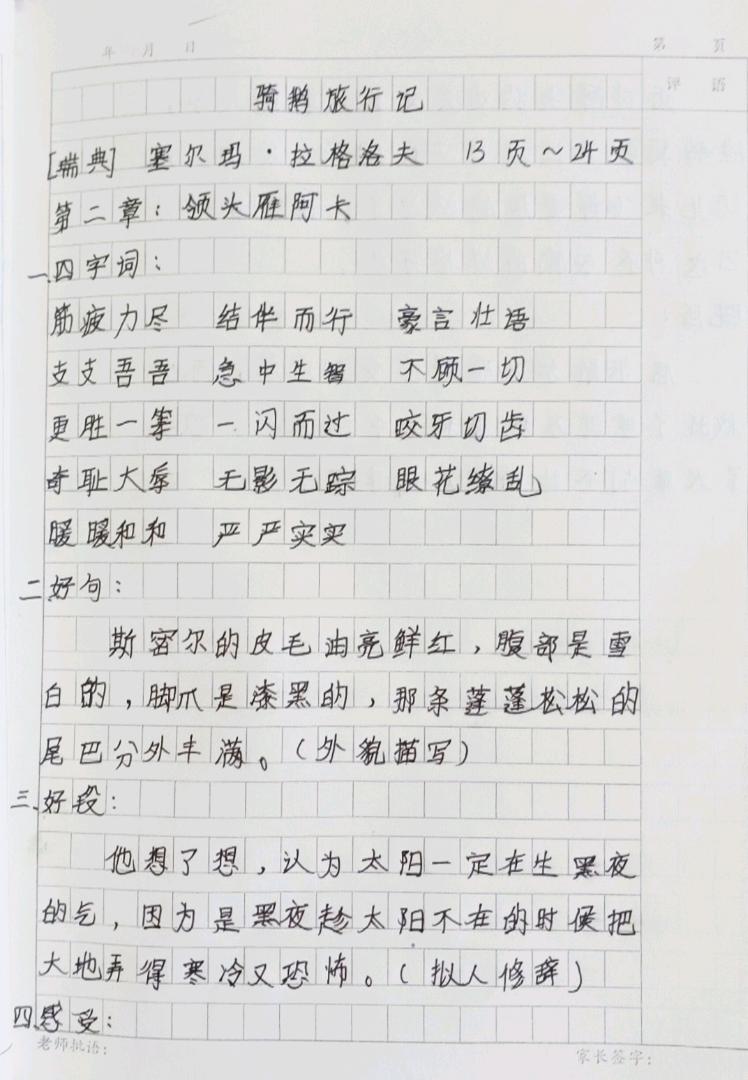 年 月 日 第 页
评 语
骑鹅旅行记
[瑞典] 塞尔玛·拉格洛夫 13页~24页
第二章：领头雁阿卡
一、四字词：
筋疲力尽 结伴而行 豪言壮语
支支吾吾 急中生智 不顾一切
更胜一筹 一闪而过 咬牙切齿
奇耻大辱 无影无踪 眼花缭乱
暖暖和和 严严实实
二、好句：
斯密尔的皮毛油亮鲜红，腹部是雪
白的，脚爪是漆黑的，那条蓬蓬松松的
尾巴分外丰满。（外貌描写）
三、好段：
他想了想，认为太阳一定在生黑夜
的气，因为是黑夜趁太阳不在的时候把
大地弄得寒冷又恐怖。（拟人修辞）
四、感受：
老师批语： 家长签字：